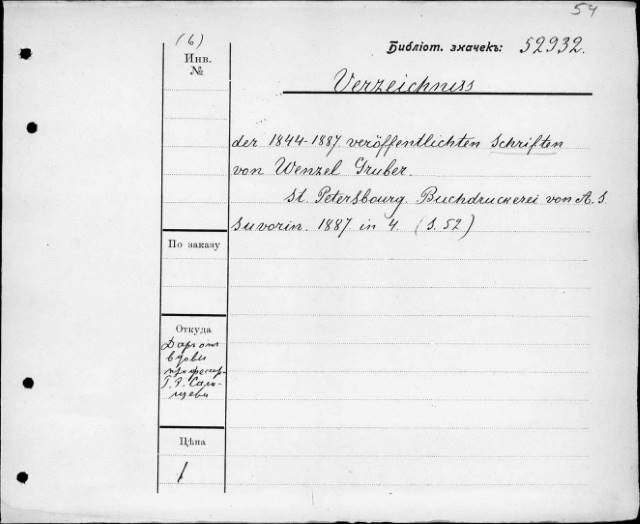 54
(6)
Библіот. значекъ: 52932.
Инв.
№
Verzeichniss
der 1844-1887 veröffentlichten Schriften
von Wenzel Gruber.
St. Petersbourg. Buchdruckerei von A. S.
Suvorin. 1887. in 4. (S. 52)
По заказу
Откуда
Даръ от
вдовы
профессор.
Цѣна